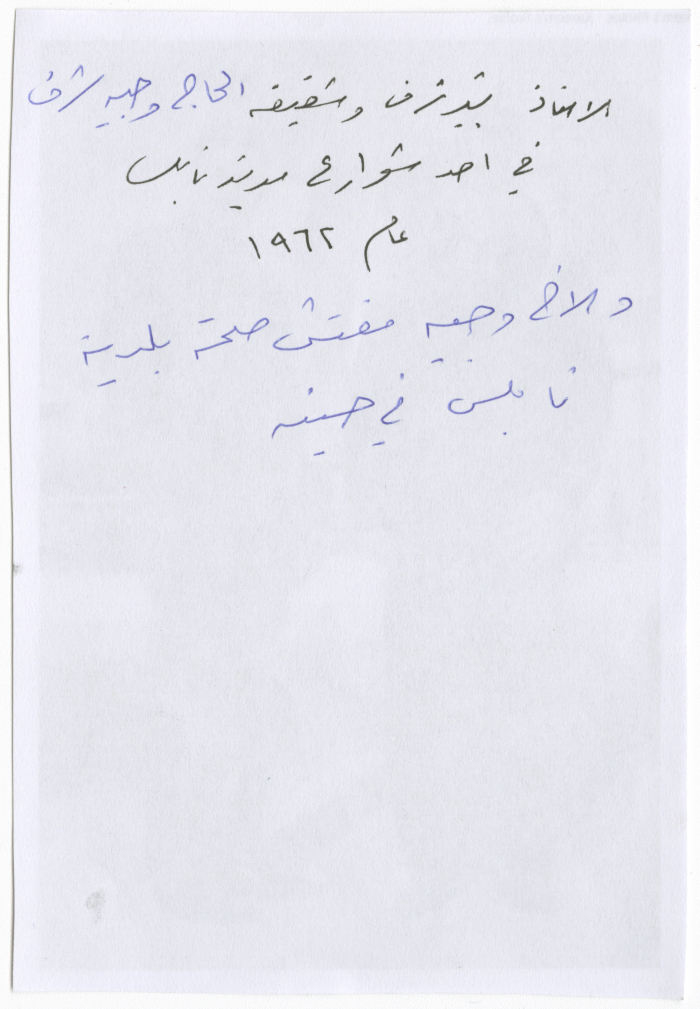 الاستاذ بشير شرف وشقيقه الحاج وجيه شرف
في احد شوارع مدينة نابلس
عام ١٩٦٢
والاخ وجيه مفتش صحة بلدية
نابلس في حينه